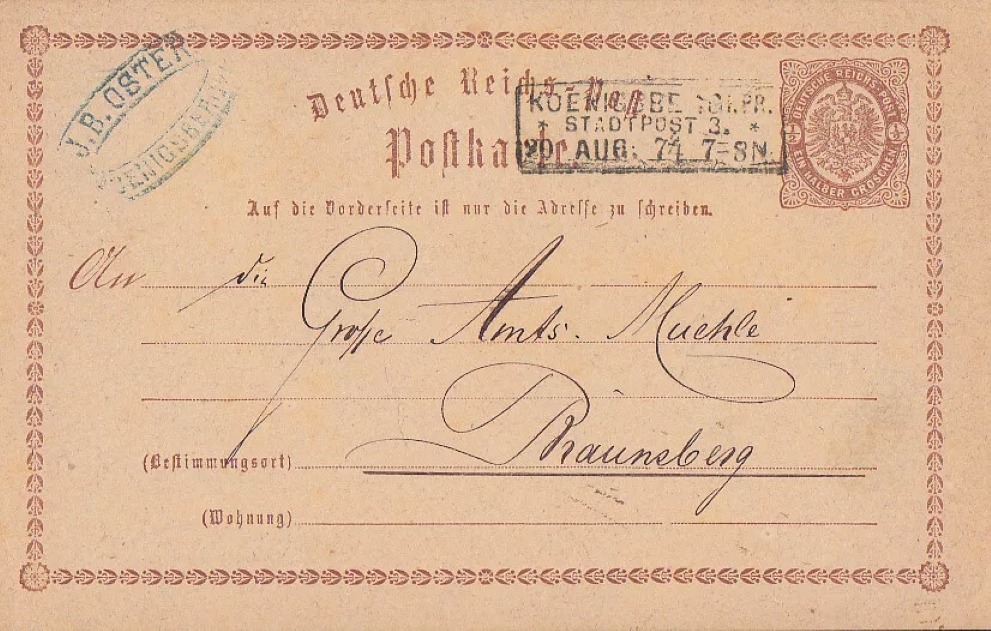 J. B. OSTER
KOENIGSBERG
Deutsche Reichs-Post
Postkarte
KOENIGSBERG I. PR.
* STADTPOST 3. *
20 AUG. 74 7-8N.
DEUTSCHE REICHS-POST
½ ½
EIN HALBER GROSCHEN
Auf die Vorderseite ist nur die Adresse zu schreiben.
An die
Grosse Amts-Muehle
(Bestimmungsort) Braunsberg
(Wohnung)